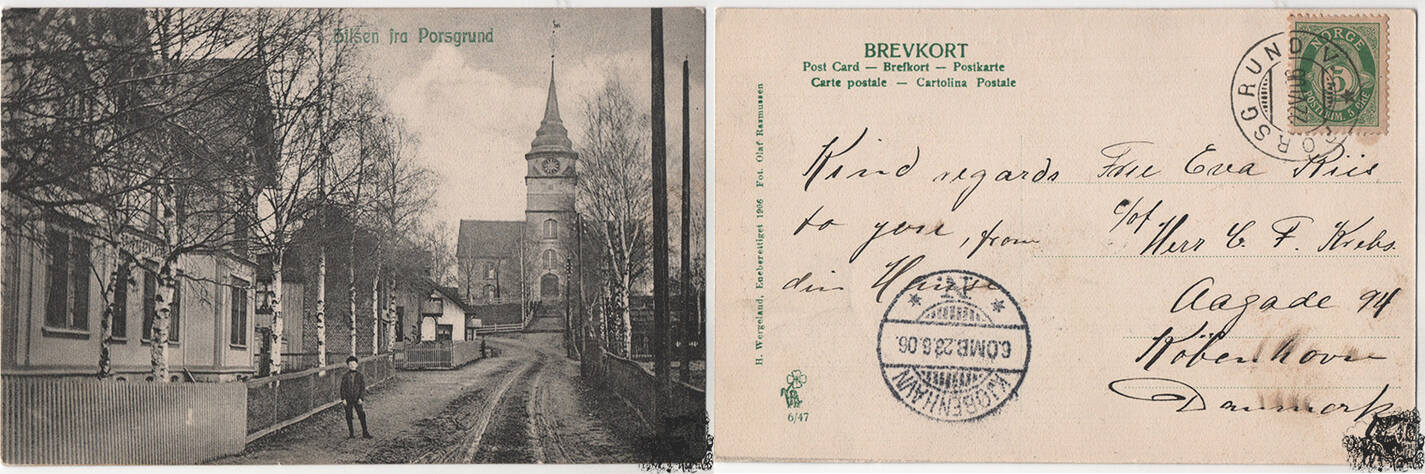 Hilsen fra Porsgrund
BREVKORT
Post Card — Brefkort — Postkarte
Carte postale — Cartolina Postale
H. Wergeland, Eneberettiget 1906 Fot. Olaf Rasmussen
6/47
NORGE
5
POSTFRIM. 5 ØRE
PORSGRUND
Kind regards
to you, from
din Hause
KJØBENHAVN
6.OMB.23.6.06.
Frk Eva Riis
c/of
Herr C. F. Krebs.
Aagade 94
København
Danmark